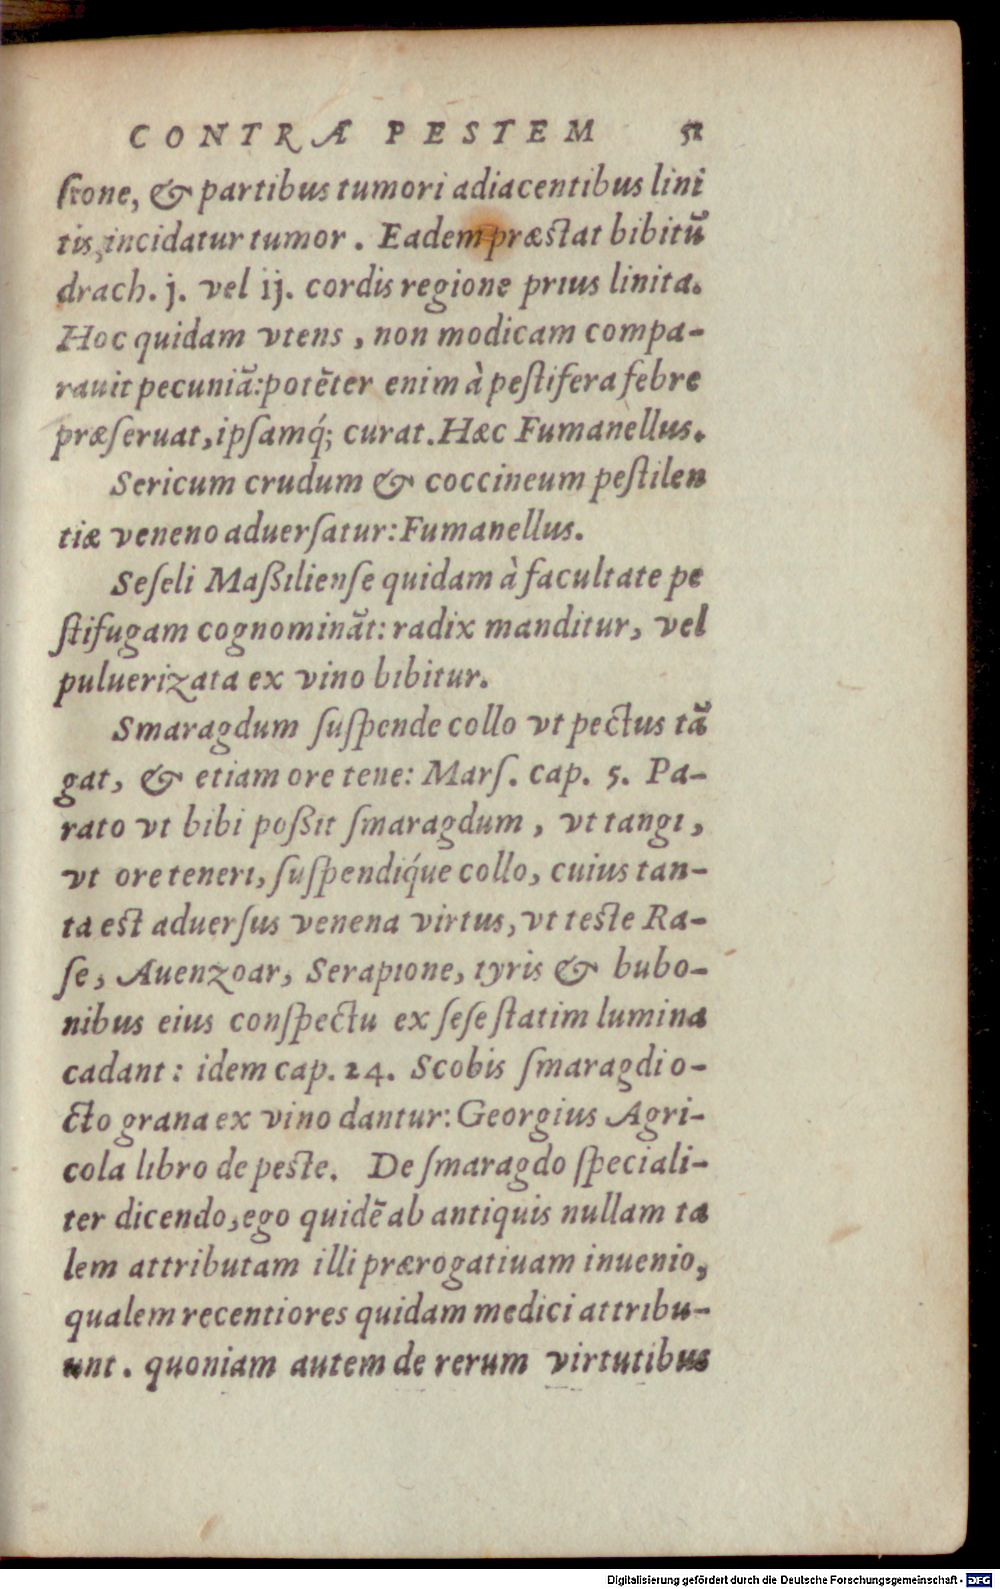 CONTRA PESTEM 52
ſtone, & partibus tumori adiacentibus lini
tis, incidatur tumor. Eadem præstat bibitū
drach. j. vel ij. cordis regione prius linita.
Hoc quidam vtens, non modicam compa-
rauit pecuniā: potēter enim à peſtifera febre
præſeruat, ipſamq́; curat. Hæc Fumanellus.
Sericum crudum & coccineum peſtilen
tiæ veneno aduerſatur: Fumanellus.
Seſeli Maßilienſe quidam à facultate pe
ſtifugam cognominãt: radix manditur, vel
puluerizata ex vino bibitur.
Smaragdum ſuſpende collo vt pectus tā
gat, & etiam ore tene: Marſ. cap. 5. Pa-
rato vt bibi poßit ſmaragdum, vt tangi,
vt ore teneri, ſuſpendiq́ue collo, cuius tan-
ta est aduerſus venena virtus, vt teste Ra-
ſe, Auenzoar, Serapione, tyris & bubo-
nibus eius conſpectu ex ſeſe ſtatim lumina
cadant: idem cap. 24. Scobis ſmaragdi o-
cto grana ex vino dantur: Georgius Agri-
cola libro de peste. De ſmaragdo ſpeciali-
ter dicendo, ego quidē ab antiquis nullam ta
lem attributam illi prærogatiuam inuenio,
qualem recentiores quidam medici attribu-
unt. quoniam autem de rerum virtutibus
Digitalisierung gefördert durch die Deutsche Forschungsgemeinschaft - DFG